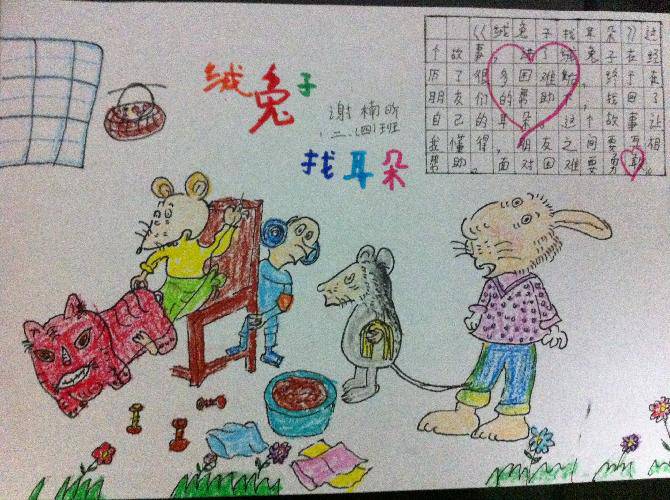 绒兔子
谢楠昕
二.(四)班
找耳朵
《绒兔子找耳朵》这
个故事,讲了绒兔子在经
历了很多困难后,终于在
朋友们的帮助下,找回了
自己的耳朵。这个故事让
我懂得,朋友之间要互相
帮助,面对困难要勇敢。